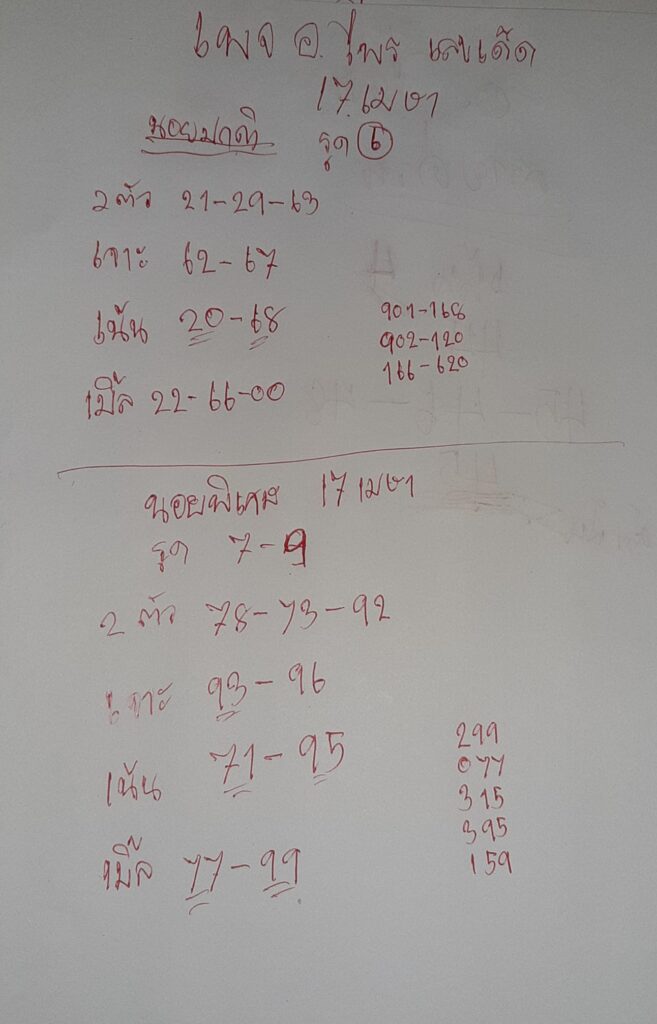 เพจ อ.ไพร เลขเด็ด
17 เมษา
นอยปกติ รูด 6
2 ตัว 21-29-63
เจาะ 62-67
เน้น 20-68
901-168
902-120
166-620
เบิ้ล 22-66-00
นอยพิเศษ 17 เมษา
รูด 7-9
2 ตัว 78-73-92
เจาะ 93-96
เน้น 71-95
299
077
315
395
159
เบิ้ล 77-99